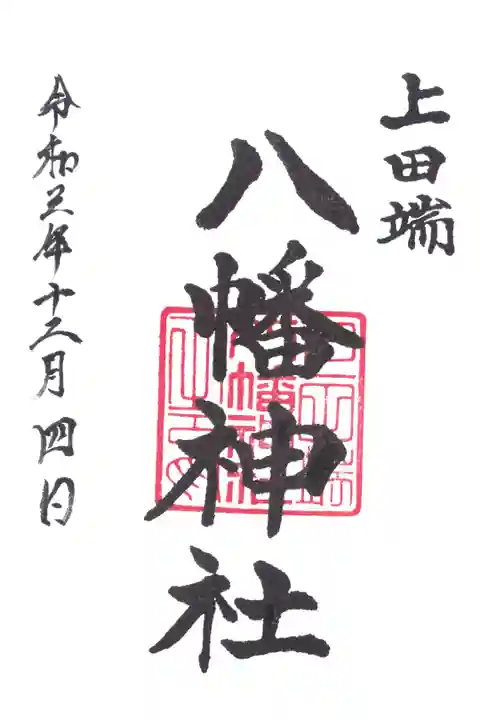 上田端
八幡神社
令和三年十二月四日